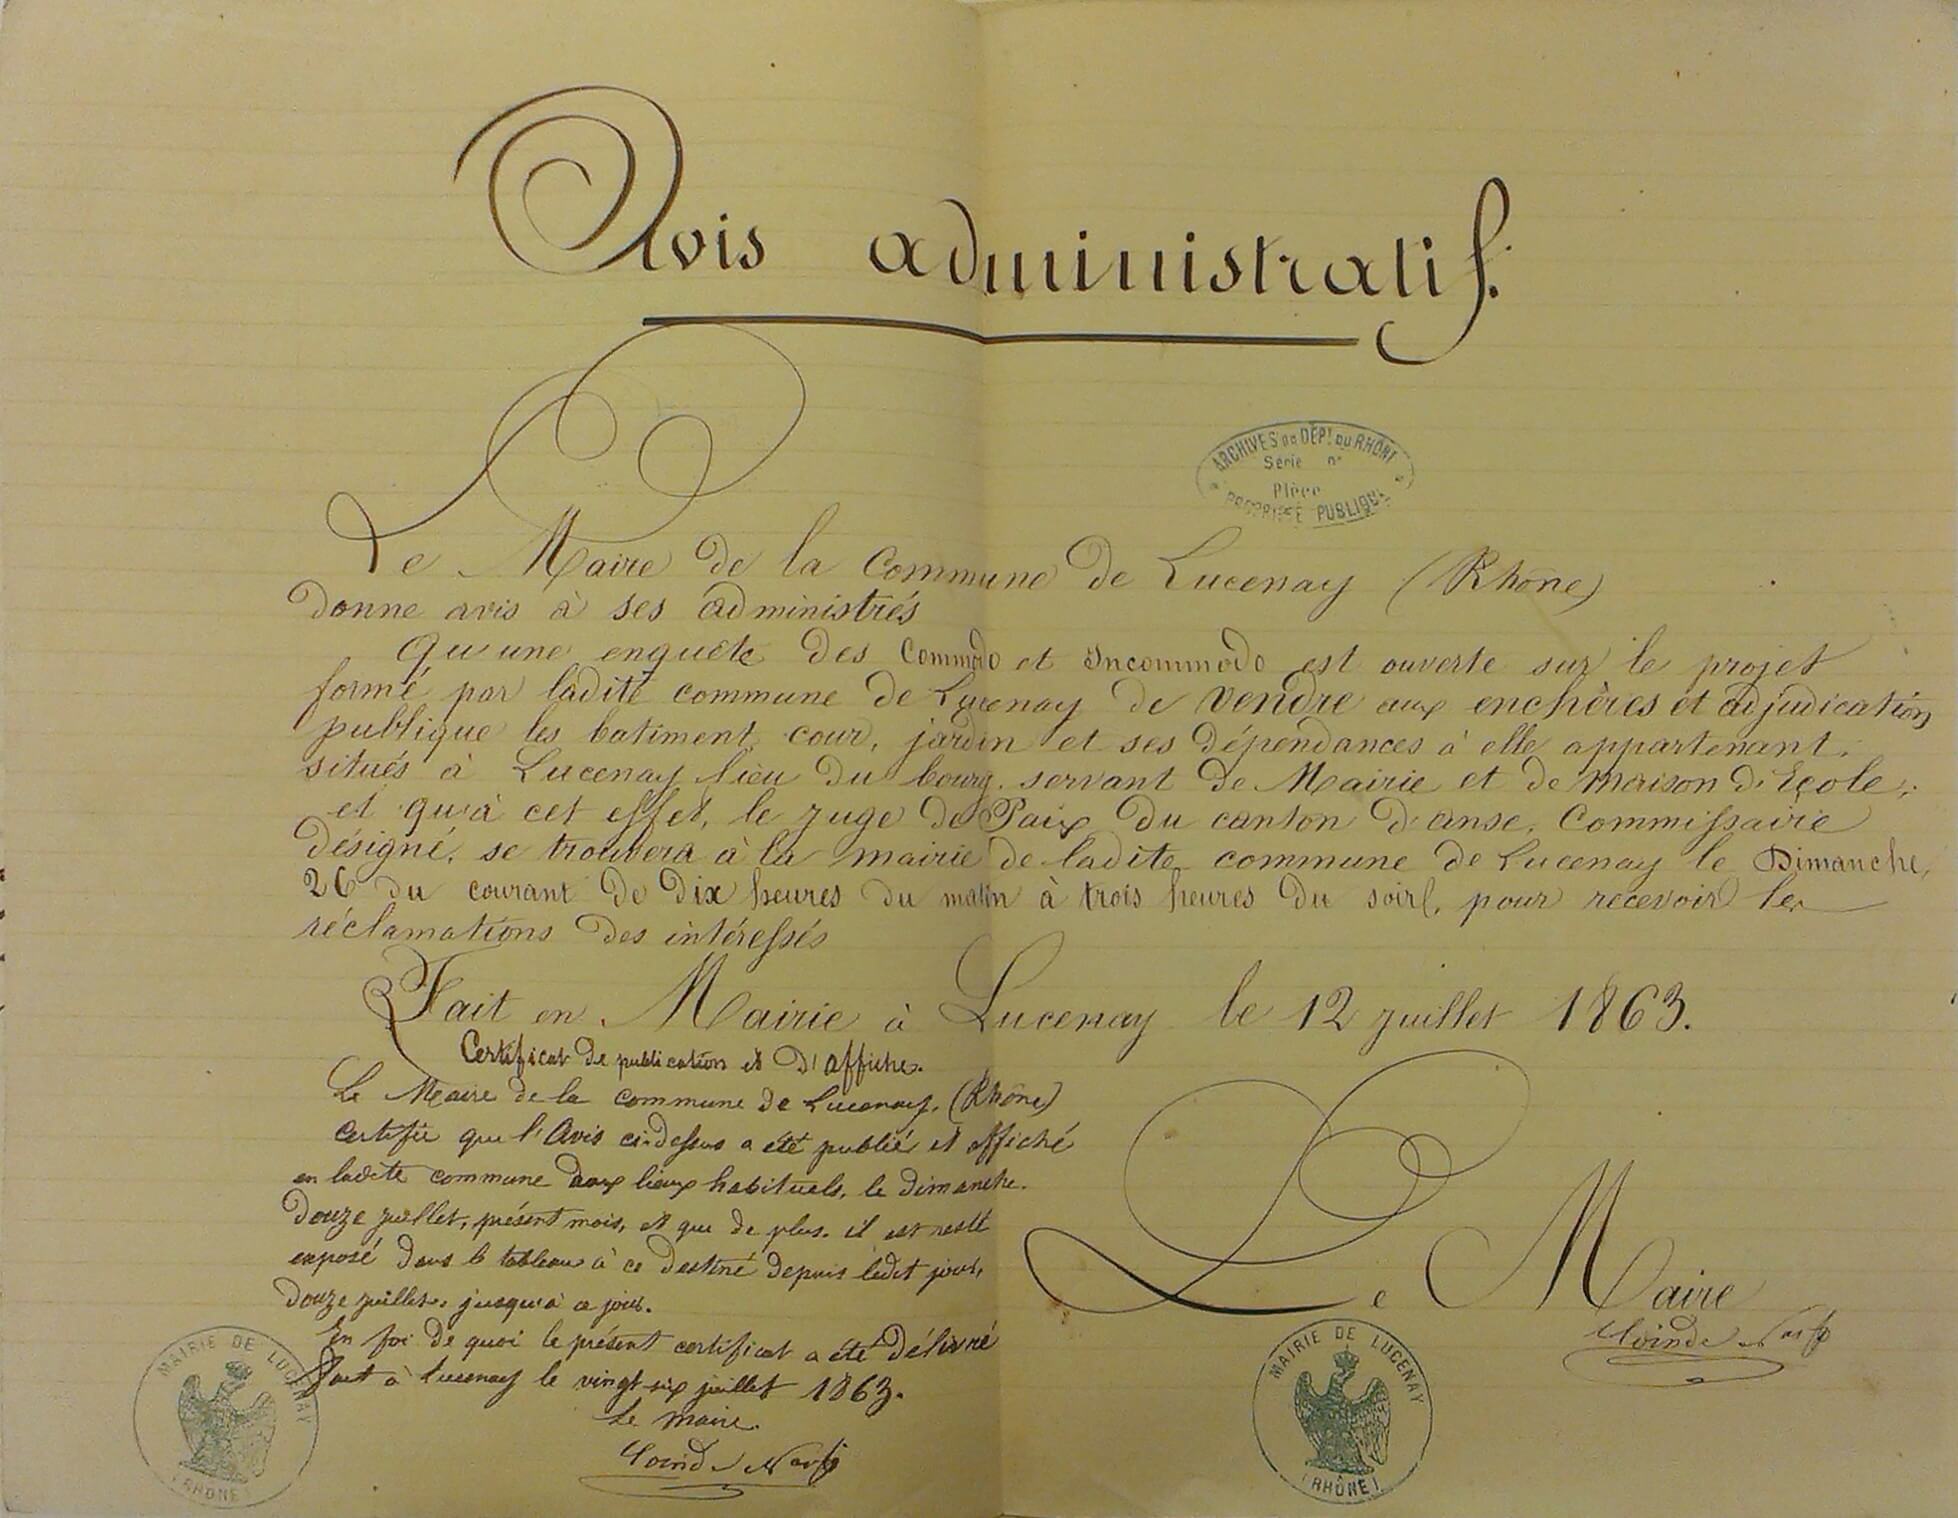 Avis administratif.
ARCHIVES DU DÉPT DU RHÔNE
Série n°
Pièce
PROPRIÉTÉ PUBLIQUE
Le Maire de la Commune de Lucenay (Rhône)
donne avis à ses administrés
Qu'une enquête des Commodo et Incommodo est ouverte sur le projet
formé par ladite commune de Lucenay de vendre aux enchères et adjudication
publique les batiment cour, jardin et ses dépendances à elle appartenant,
situés à Lucenay lieu du bourg, servant de Mairie et de maison d'Ecole,
et qu'à cet effet, le juge de Paix du canton d'anse, Commissaire
désigné, se trouvera à la mairie de ladite commune de Lucenay le Dimanche,
26 du courant de dix heures du matin à trois heures du soir, pour recevoir les
réclamations des intéressés
Fait en Mairie à Lucenay le 12 juillet 1863.
Certificat de publication et d'affiche.
Le Maire de la commune de Lucenay, (Rhône)
Certifie que l'Avis ci-dessus a été publié et affiché
en ladite commune aux lieux habituels, le dimanche
douze juillet, présent mois, et que de plus, il est resté
exposé dans le tableau à ce destiné depuis ledit jour,
douze juillet, jusqu'à ce jour.
En foi de quoi le présent certificat a été délivré
Fait à Lucenay le vingt-six juillet 1863.
Le maire.
Le Maire
MAIRIE DE LUCENAY
(RHÔNE)
MAIRIE DE LUCENAY
(RHÔNE)